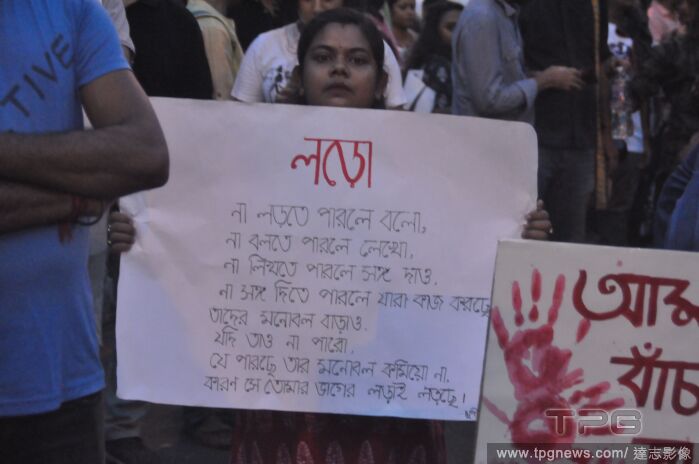 TIVE
লড়ো
না লড়তে পারলে বলো,
না বলতে পারলে লেখো,
না লিখতে পারলে সঙ্গ দাও,
না সঙ্গ দিতে পারলে যারা কাজ করছে
তাদের মনোবল বাড়াও.
যদি তাও না পারো,
যে পারছে তার মনোবল কমিয়ো না.
কারণ সে তোমার ভাগের লড়াই লড়ছে।
বাঁচ
TPG
www.tpgnews.com/ 達志影像